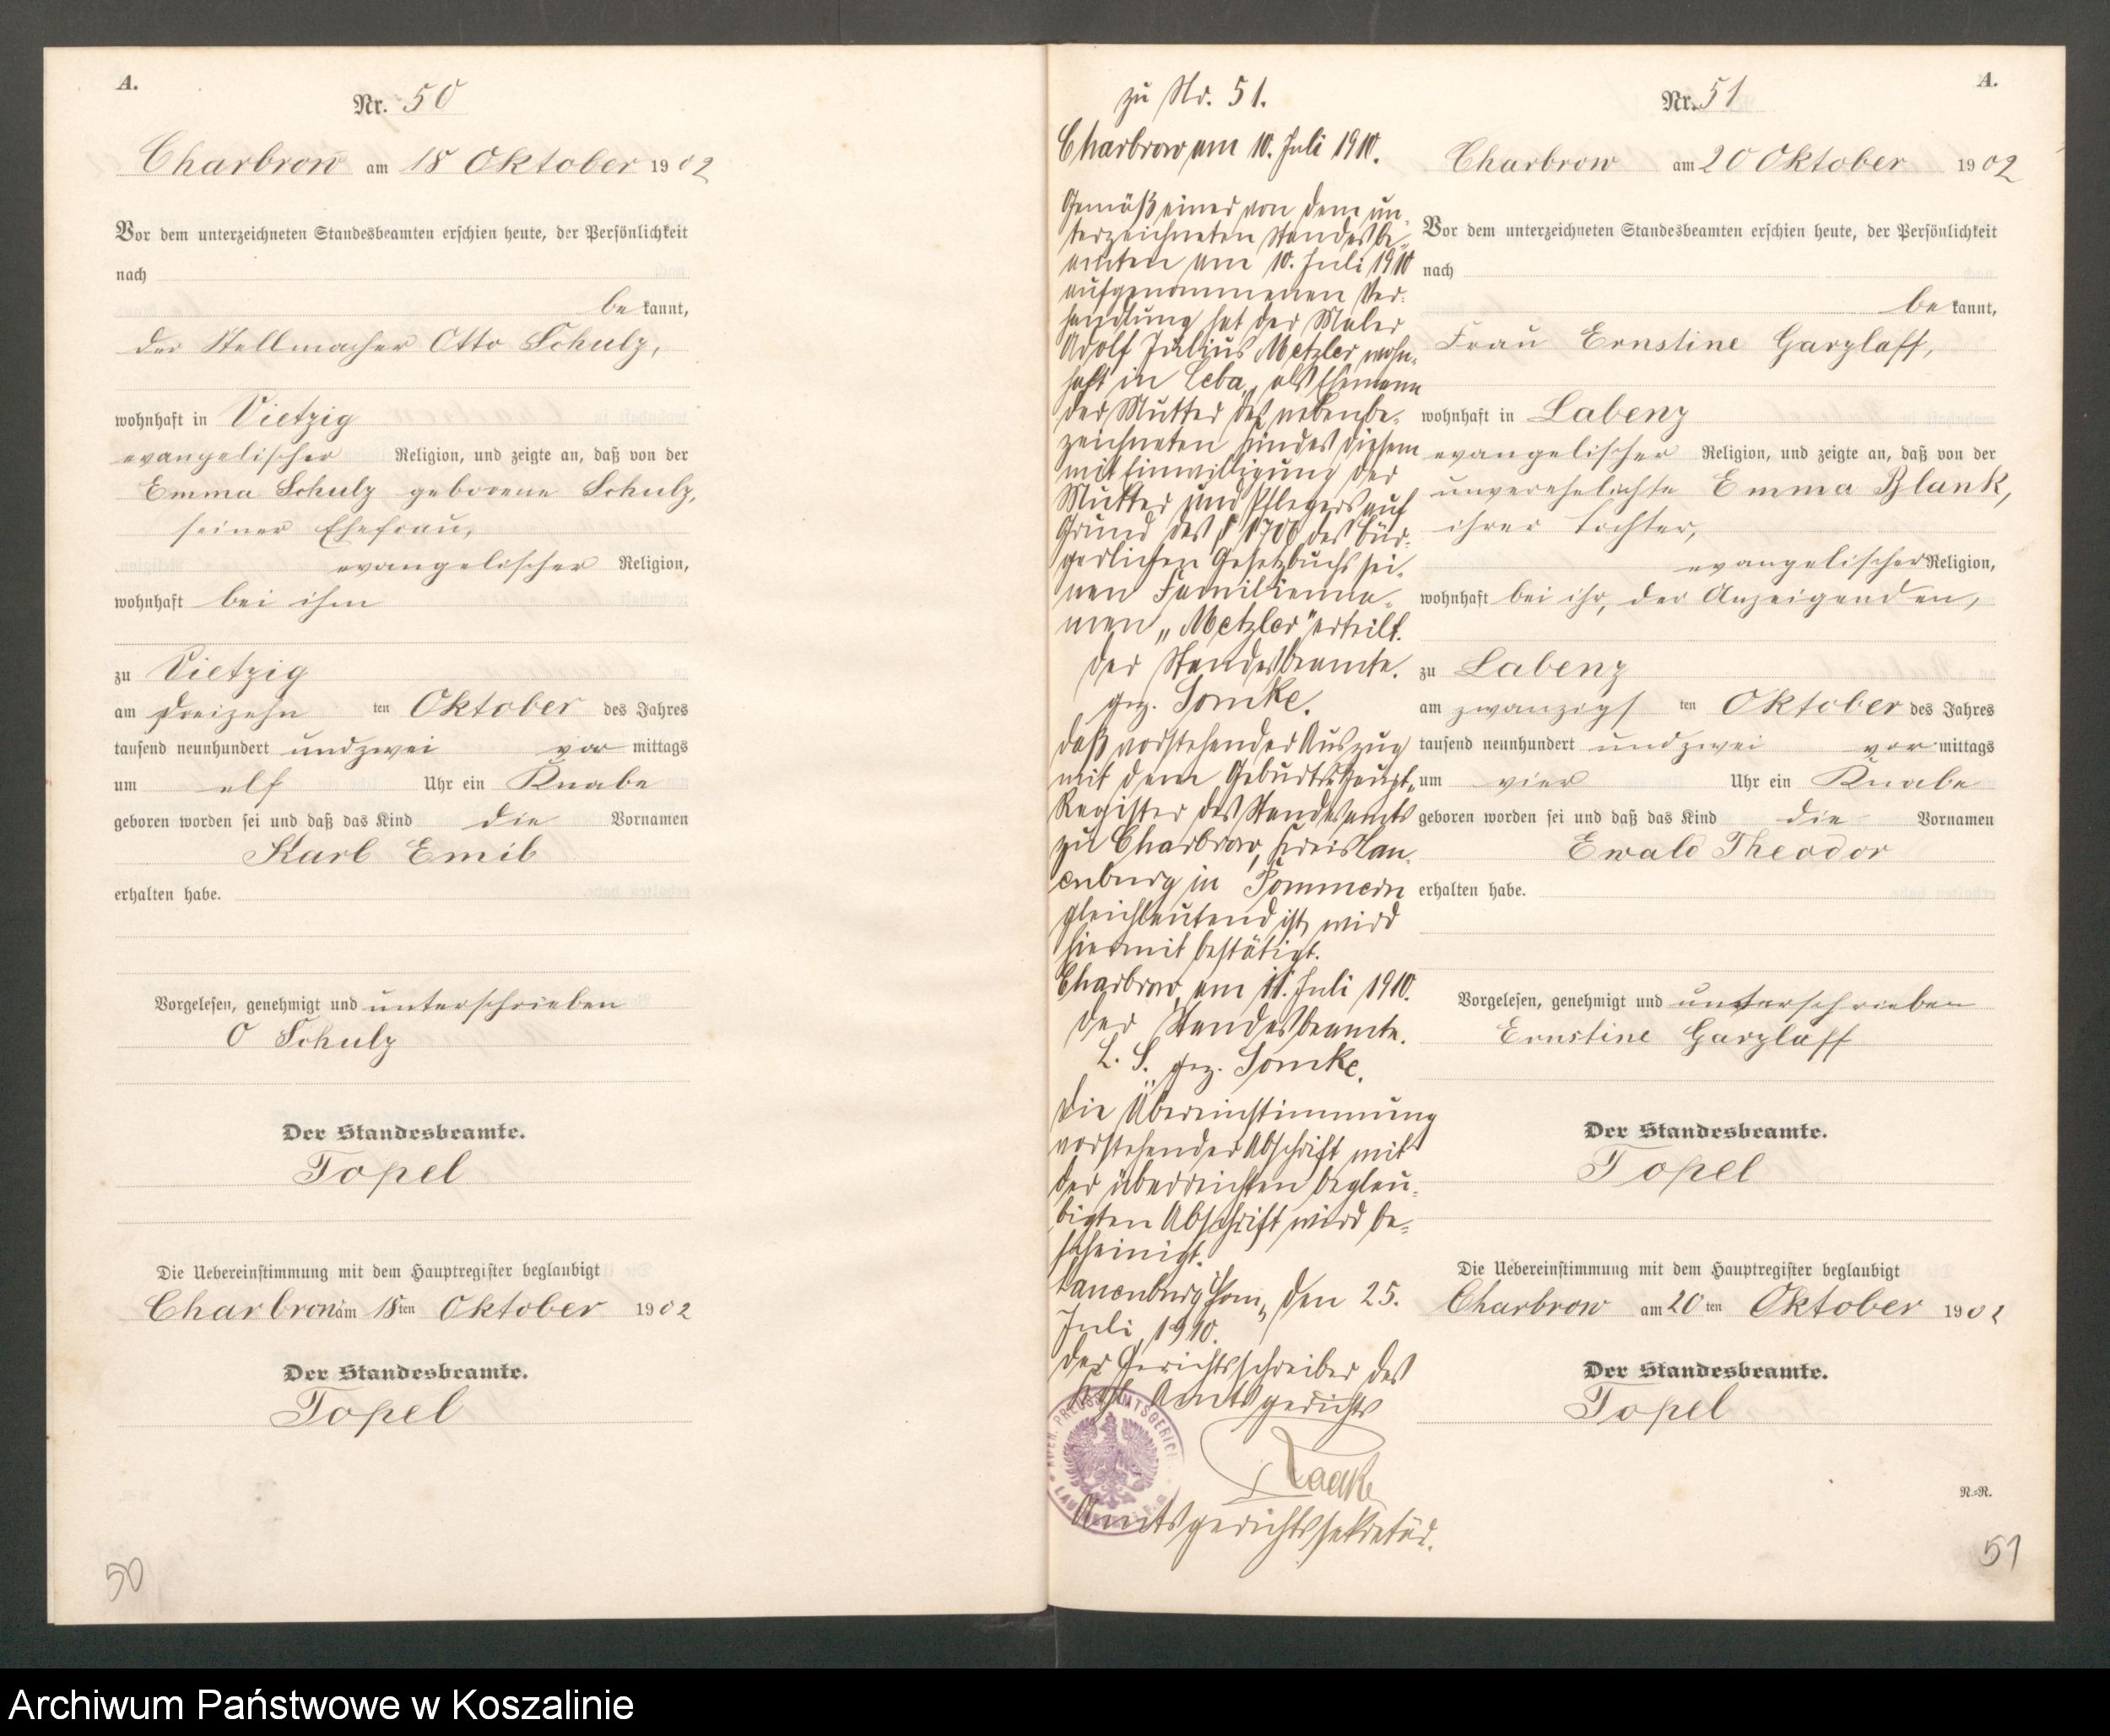 A.
Nr. 50
Charbrow am 18 Oktober 1902
Vor dem unterzeichneten Standesbeamten erschien heute, der Persönlichkeit
nach
be kannt,
der Stellmacher Otto Schulz,
wohnhaft in Vietzig
evangelischer Religion, und zeigte an, daß von der
Emma Schulz geborene Schulz,
seiner Ehefrau,
evangelischer Religion,
wohnhaft bei ihm
zu Vietzig
am dreizehn ten Oktober des Jahres
tausend neunhundert undzwei vor mittags
um elf Uhr ein Knabe
geboren worden sei und daß das Kind die Vornamen
Karl Emil
erhalten habe.
Vorgelesen, genehmigt und unterschrieben
O Schulz
Der Standesbeamte.
Topel
Die Uebereinstimmung mit dem Hauptregister beglaubigt
Charbrow am 18ten Oktober 1902
Der Standesbeamte.
Topel
50
zu Nr. 51.
Charbrow am 10. Juli 1910.
Gemäß einer von dem un-
terzeichneten Standesbe-
amten am 10. Juli 1910
aufgenommenen Ver-
handlung hat der Maler
Adolf Julius Metzler wohn-
haft in Leba, als Ehemann
der Mutter des nebenbe-
zeichneten Kindes diesem
mit Einwilligung der
Mutter und Pflegers auf
Grund des § 1706 des Bür-
gerlichen Gesetzbuchs sei-
nen Familienna-
men „Metzler" erteilt.
Der Standesbeamte.
gez. Tomke.
Daß vorstehender Auszug
mit dem Geburtshaupt-
Register des Standesamts
zu Charbrow, Kreis Lau-
enburg in Pommern
gleichlautend ist, wird
hiermit bestätigt.
Charbrow, am 11. Juli 1910.
Der Standesbeamte.
L. S. gez. Tomke.
Die Übereinstimmung
vorstehender Abschrift mit
der überreichten beglau-
bigten Abschrift wird be-
scheinigt.
Lauenburg Pom, den 25.
Juli 1910.
Der Gerichtsschreiber des
Kgl. Amtsgerichts
Amtsgerichtssekretär.
A.
Nr. 51
Charbrow am 20 Oktober 1902
Vor dem unterzeichneten Standesbeamten erschien heute, der Persönlichkeit
nach
be kannt,
Frau Ernstine Garzlaff,
wohnhaft in Labenz
evangelischer Religion, und zeigte an, daß von der
unverehelichte Emma Blank,
ihrer Tochter,
evangelischer Religion,
wohnhaft bei ihr, der Anzeigenden,
zu Labenz
am zwanzigs ten Oktober des Jahres
tausend neunhundert undzwei vor mittags
um vier Uhr ein Knabe
geboren worden sei und daß das Kind die Vornamen
Ewald Theodor
erhalten habe.
Vorgelesen, genehmigt und unterschrieben
Ernstine Garzlaff
Der Standesbeamte.
Topel
Die Uebereinstimmung mit dem Hauptregister beglaubigt
Charbrow am 20 ten Oktober 1902
Der Standesbeamte.
Topel
N.-N.
51
Archiwum Państwowe w Koszalinie